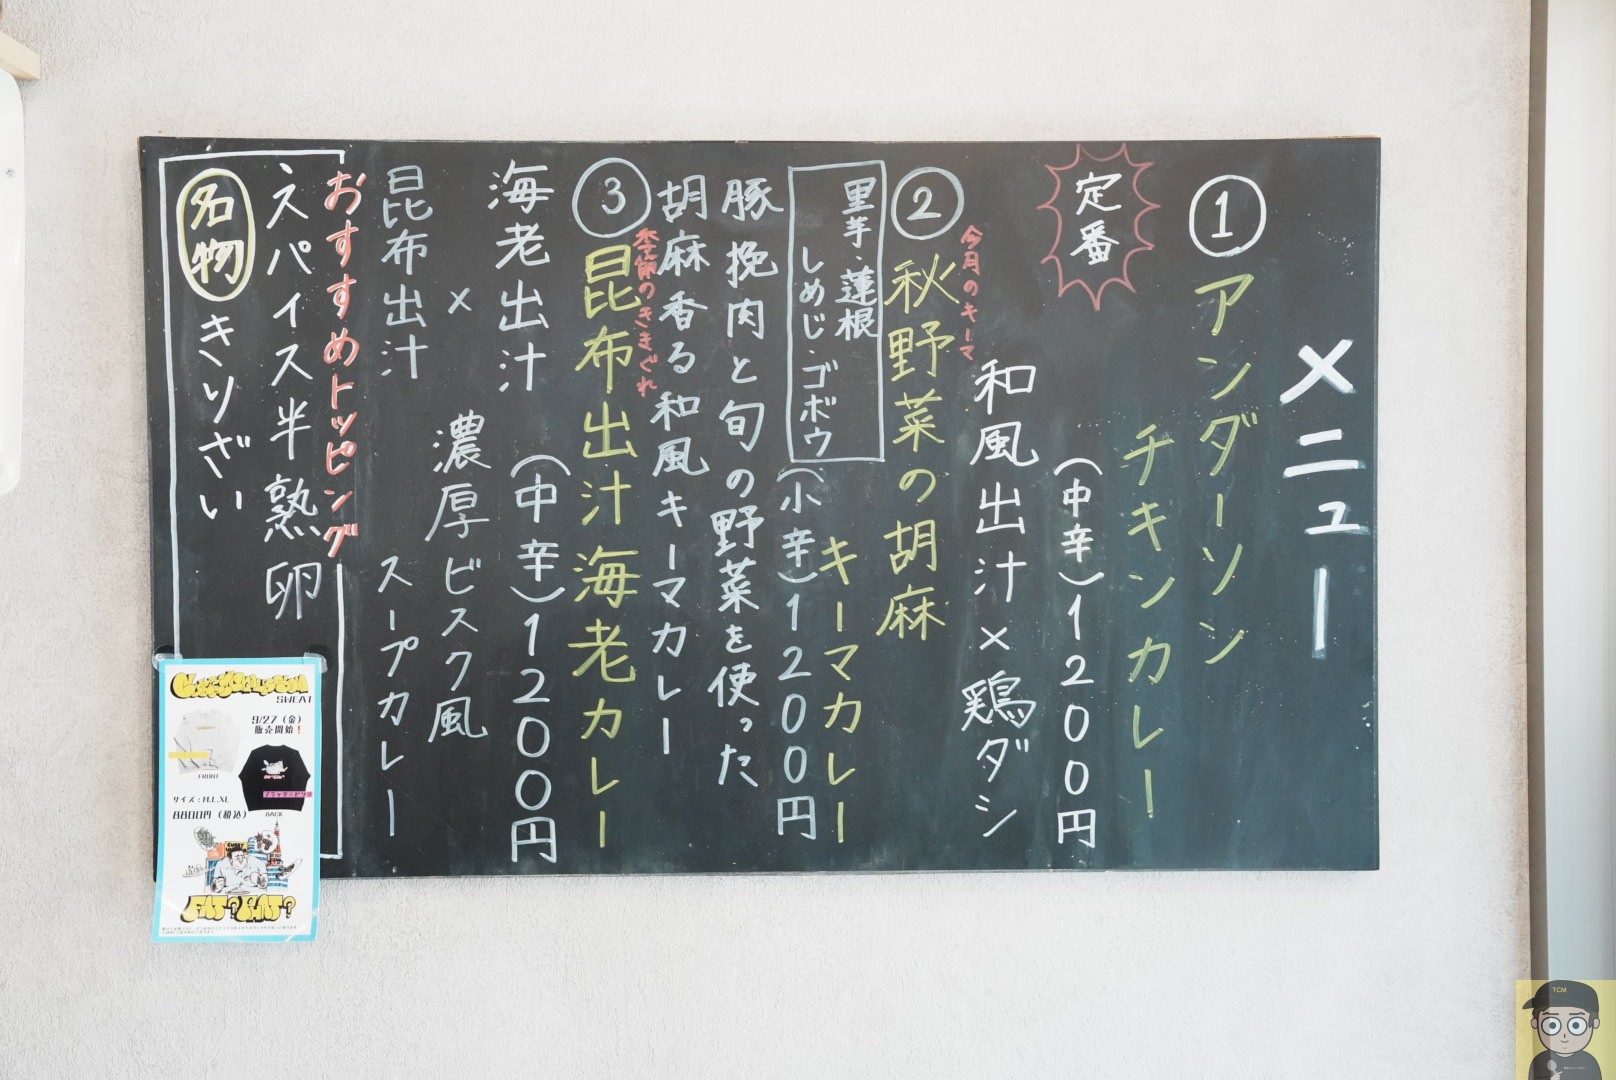 メニュー
① アンダーソン
チキンカレー
定番
(中辛)1200円
和風出汁×鶏ダシ
今月のキーマ
② 秋野菜の胡麻
キーマカレー
里芋・蓮根
しめじ・ゴボウ
(小辛)1200円
豚挽肉と旬の野菜を使った
胡麻香る和風キーマカレー
③ 昆布出汁海老カレー
(中辛)1200円
海老出汁
×
昆布出汁
濃厚ビスク風
スープカレー
おすすめトッピング
スパイス半熟卵
名物 きりざい
SWEAT
9/27(金)
販売開始!
FRONT
サイズ:M.L.XL
8800円(税込)
BACK
FAT?PHAT?
TCM